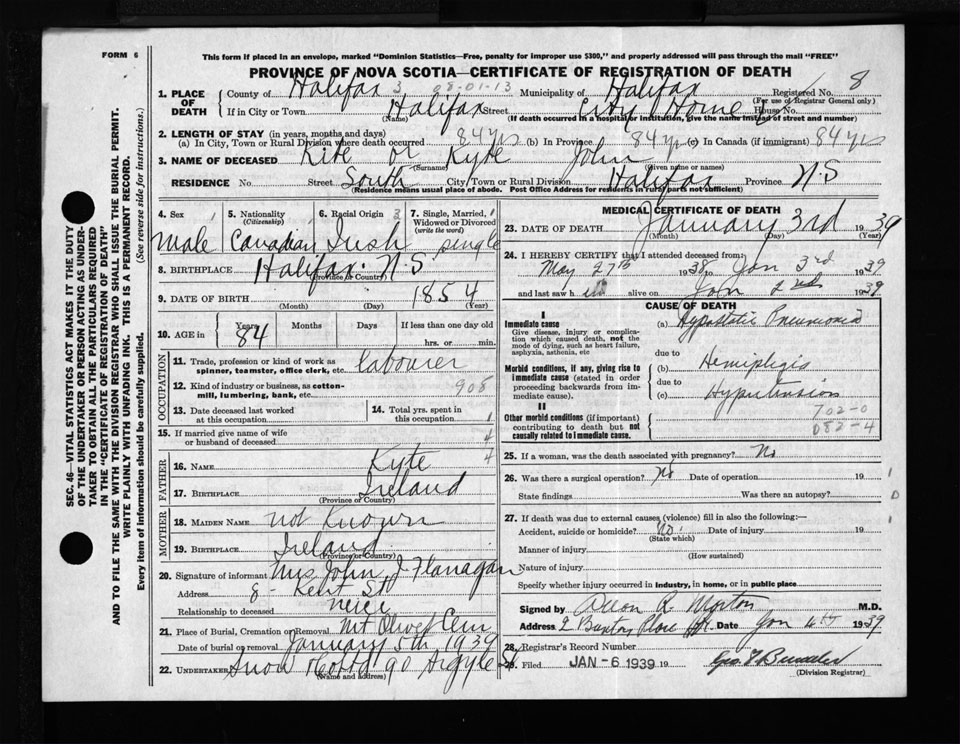 FORM 6
This form if placed in an envelope, marked "Dominion Statistics—Free, penalty for improper use $300," and properly addressed will pass through the mail "FREE"
PROVINCE OF NOVA SCOTIA—CERTIFICATE OF REGISTRATION OF DEATH
SEC. 46—VITAL STATISTICS ACT MAKES IT THE DUTY
OF THE UNDERTAKER OR PERSON ACTING AS UNDER-
TAKER TO OBTAIN ALL THE PARTICULARS REQUIRED
IN THE "CERTIFICATE OF REGISTRATION OF DEATH"
AND TO FILE THE SAME WITH THE DIVISION REGISTRAR WHO SHALL ISSUE THE BURIAL PERMIT.
WRITE PLAINLY WITH UNFADING INK. THIS IS A PERMANENT RECORD.
Every item of information should be carefully supplied. (See reverse side for instructions.)
1. PLACE OF DEATH County of Halifax 3 08-01-13 Municipality of Halifax Registered No. 8
(For use of Registrar General only)
If in City or Town Halifax Street City Home House No.
(Name) (If death occurred in a hospital or institution, give the name instead of street and number)
2. LENGTH OF STAY (in years, months and days)
(a) In City, Town or Rural Division where death occurred 84 yrs (b) In Province 84 yrs (c) In Canada (if immigrant) 84 yrs
3. NAME OF DECEASED Kite or Kyte John
(Surname) (Given name or names)
RESIDENCE No. Street South City, Town or Rural Division Halifax Province N.S
(Residence means usual place of abode. Post Office Address for residents in rural parts not sufficient)
4. Sex 1 5. Nationality 1 6. Racial Origin 2 7. Single, Married, 1
(Citizenship) Widowed or Divorced
(write the word)
Male Canadian Irish single
8. BIRTHPLACE Halifax N S
(Province or Country)
9. DATE OF BIRTH 1854
(Month) (Day) (Year)
10. AGE in Years Months Days If less than one day old
84 hrs. or min.
OCCUPATION
11. Trade, profession or kind of work as
spinner, teamster, office clerk, etc. labourer
12. Kind of industry or business, as cotton-
mill, lumbering, bank, etc. 908
13. Date deceased last worked
at this occupation
14. Total yrs. spent in
this occupation 1
15. If married give name of wife
or husband of deceased 4
FATHER
16. Name Kyte 4
17. Birthplace Ireland
(Province or Country)
MOTHER
18. Maiden Name not Known
19. Birthplace Ireland
(Province or Country)
20. Signature of informant Mrs John J Flanagan
Address 8 - Kent St
Relationship to deceased neice
21. Place of Burial, Cremation or Removal Mt Olivet Cem
Date of burial or removal January 5th 1939
22. Undertaker Snow & Co Ltd 90 Argyle St
(Name and address)
MEDICAL CERTIFICATE OF DEATH
23. DATE OF DEATH January 3rd 1939
(Month) (Day) (Year)
24. I HEREBY CERTIFY that I attended deceased from:
May 27th 1938 to Jan 3rd 1939
and last saw h im alive on Jan 2nd 1939
CAUSE OF DEATH
I
Immediate cause
Give disease, injury or complica-
tion which caused death, not the
mode of dying, such as heart failure,
asphyxia, asthenia, etc
(a) Hypostatic Pneumonia
due to
Morbid conditions, if any, giving rise to
immediate cause (stated in order
proceeding backwards from im-
mediate cause).
(b) Hemiplegia
due to
(c) Hypertension
II
Other morbid conditions (if important)
contributing to death but not
causally related to immediate cause.
702-0
082-4
25. If a woman, was the death associated with pregnancy? No
26. Was there a surgical operation? No Date of operation 19
State findings Was there an autopsy?
27. If death was due to external causes (violence) fill in also the following:—
Accident, suicide or homicide? No. Date of injury 19
(State which)
Manner of injury
(How sustained)
Nature of injury
Specify whether injury occurred in industry, in home, or in public place
Signed by Allan R. Morton M.D.
Address Place Date Jan 4th 1939
28. Registrar's Record Number
29. Filed JAN - 6 1939 19
(Division Registrar)